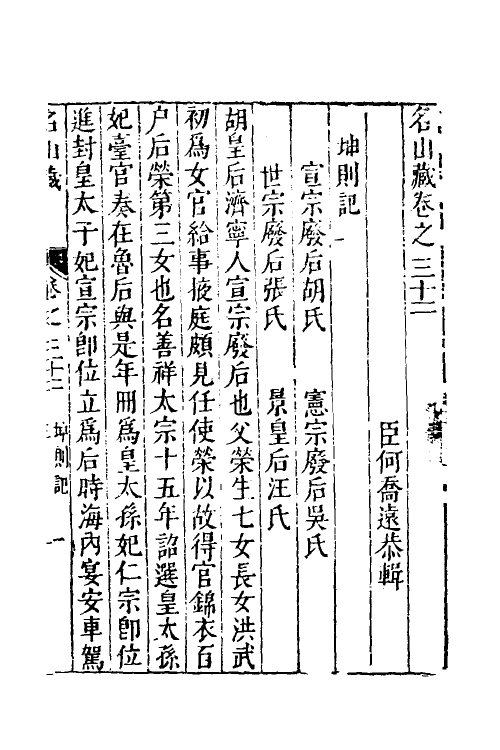 名山藏卷之三十二
臣何喬遠恭輯
坤則記一
宣宗廢后胡氏 憲宗廢后吳氏
世宗廢后張氏 景皇后汪氏
胡皇后濟寧人宣宗廢后也父榮生七女長女洪武
初爲女官給事掖庭頗見任使榮以故得官錦衣百
户后榮第三女也名善祥太宗十五年詔選皇太孫
妃臺官奏在魯后與是年冊爲皇太孫妃仁宗卽位
進封皇太子妃宣宗卽位立爲后時海內宴安車駕
名山藏 卷之三十二 坤則記 一